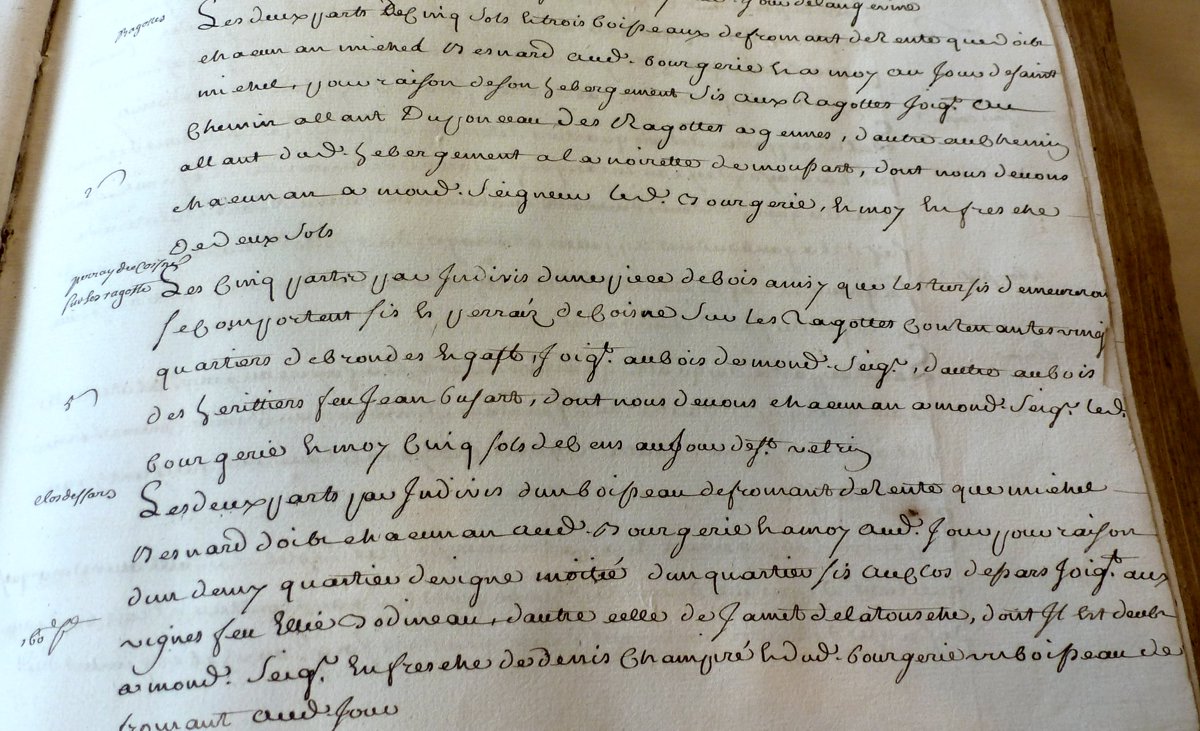 Jour de langevine
Ragottes
Les deux parts de Cinq sols et trois boisseaux de fromant de Rente que doibt
chacun an michel Besnard aud. bourgerie et a moy au Jour de saint
michel, pour raison de son hebergement sis aux Ragottes Joig.t au
chemin allant Du ponceau des Ragottes a gennes, d'autre au chemin
allant dud. hebergement a la noirette de moussart, dont nous devons
2 s
chacun an a mond. Seigneur led. Bourgerie, et moy En fresche
De deux sols
perray de Coisne
sur les ragotte
Les Cinq partie par Indivis d'une piece de bois ainsy que les tursis demeureront
se comportent sis es perraiz de Coisne sur les Ragottes Contenantes vingt
quartiers de brondes En gast, Joig.t au bois de mond. Seig.r, d'autre au bois
5 s
des heritiers feu Jean Cusart, dont nous devons chacun an a mond. Seig.r led.
bourgerie et moy Cinq sols de Cens au Jour de s.t vetrin
clos dessars
Les deux parts par Indivis d'un boisseau de fromant de Rente que michel
Besnard doibt chacun an aud. Bourgerie et a moy aud. Jour pour raison
d'un demy quartier de vigne moitié d'un quartier sis au Clos de pars Joig.t aux
vignes feu Ellie Bodineau, d'autre celle de Jamet de la tousche, dont Il Est deubt
a mond. Seig.r En fresche de denis Champré et dud. bourgerie un boisseau de
fromant aud. Jour